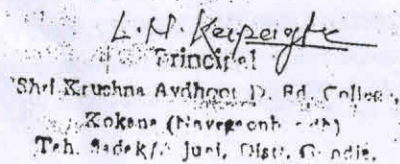 Principal
Shri Krushna Avdhoot D. Ed. College,
Kokana (Navegaonbandh)
Teh. Sadak/ Juni, Distr. Gondia